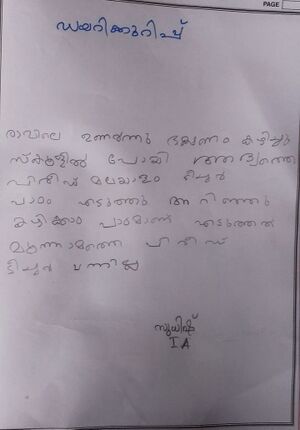 PAGE
ഡയറിക്കുറിപ്പ്
രാവിലെ ഉണർന്നു ഭക്ഷണം കഴിച്ചു
സ്കൂളിൽ പോയി ആദ്യത്തെ
പിരീഡ് മലയാളം ടീച്ചർ
പാഠം എടുത്തു അറിഞ്ഞു
കഴിക്കാം പാഠമാണ് എടുത്തത്
മൂന്നാമത്തെ പിരീഡ്
ടീച്ചർ വന്നില്ല
സുധീഷ്
I A